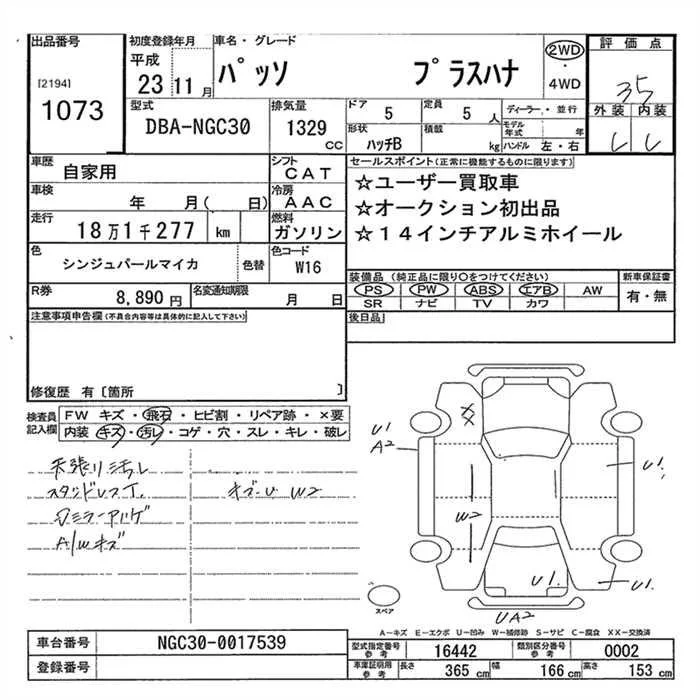 出品番号
[2194]
1073
初度登録年月
平成
23年11月
車名・グレード
パッソ プラスハナ
2WD
・
4WD
評価点
3.5
外装 内装
型式
DBA-NGC30
排気量
1329 CC
ドア 5
定員 5人
形状 ハッチB
積載 kg
ディーラー・並行
モデル年式 年
ハンドル 左・右
車歴 自家用
シフト CAT
車検 年 月( 日)
冷房 AAC
走行 18万1千277 km
燃料 ガソリン
色 シンジュパールマイカ 色替
色コード W16
R券 8,890円
名変通知期限 月 日
セールスポイント(正常に機能するものに限ります)
☆ユーザー買取車
☆オークション初出品
☆14インチアルミホイール
装備品(純正品に限り○をつけてください)
PS PW ABS エアB AW
SR ナビ TV カワ
新車保証書
有・無
注意事項申告欄(不具合内容等は具体的に記入して下さい)
後日品
修復歴 有〔箇所 〕
検査員記入欄
FW キズ・飛石・ヒビ割・リペア跡・×要
内装 キズ・汚レ・コゲ・穴・スレ・キレ・破レ
天張リ汚レ
スタッドレスT.
ミラーアハゲ
A/Wキズ
W2
U1
A2
XX
U1.
W2
U1.
U1.
UA2
スペア
A-キズ E-エクボ U-凹み W-補修跡 S-サビ C-腐食 XX-交換済
車台番号 NGC30-0017539
登録番号
型式指定番号参考 16442
類別区分番号参考 0002
車庫証明用参考 長さ 365cm 幅 166cm 高さ 153cm